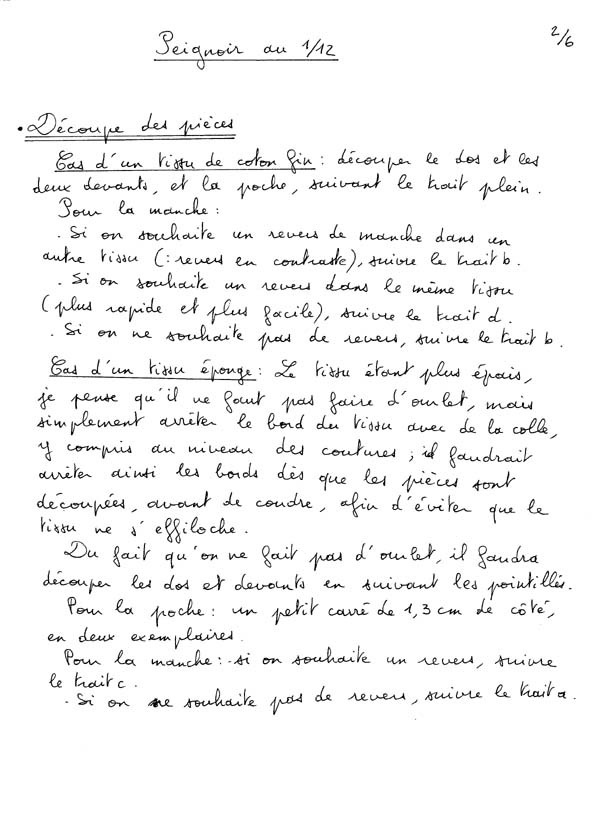 2/6
Peignoir au 1/12
• Découpe des pièces
Cas d'un tissu de coton fin : découper le dos et les
deux devants, et la poche, suivant le trait plein.
Pour la manche :
. Si on souhaite un revers de manche dans un
autre tissu (: revers en contraste), suivre le trait b.
. Si on souhaite un revers dans le même tissu
(plus rapide et plus facile), suivre le trait d.
. Si on ne souhaite pas de revers, suivre le trait b.
Cas d'un tissu éponge : Le tissu étant plus épais,
je pense qu'il ne faut pas faire d'ourlet, mais
simplement arrêter le bord du tissu avec de la colle,
y compris au niveau des coutures ; il faudrait
arrêter ainsi les bords dès que les pièces sont
découpées, avant de coudre, afin d'éviter que le
tissu ne s'effiloche.
Du fait qu'on ne fait pas d'ourlet, il faudra
découper les dos et devants en suivant les pointillés.
Pour la poche : un petit carré de 1,3 cm de côté,
en deux exemplaires.
Pour la manche : . si on souhaite un revers, suivre
le trait c.
. Si on ne souhaite pas de revers, suivre le trait a.